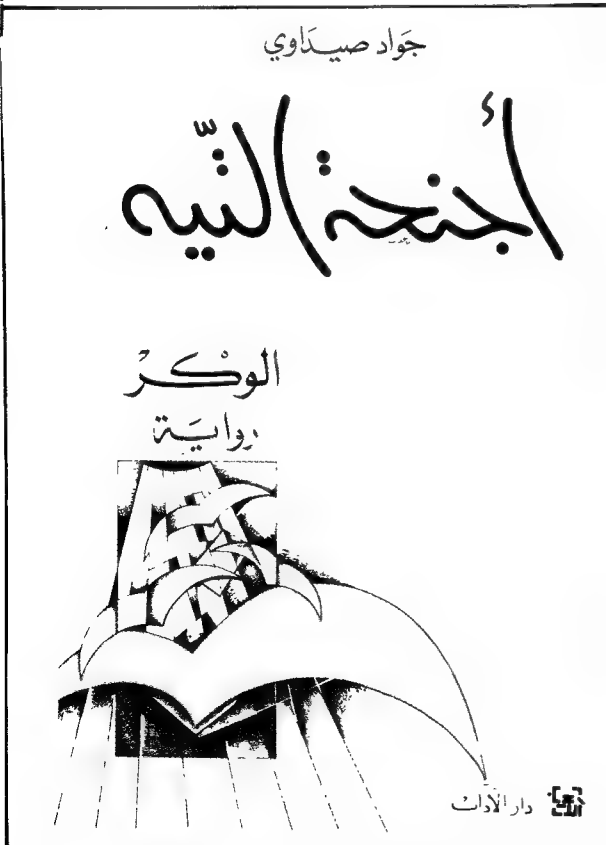 جَواد صيدَاوي
أجنحة التّيه
الوكْرْ
رواية
دار الآداب